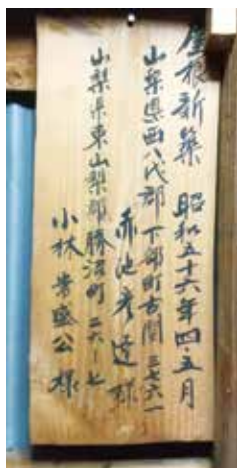 屋根新築 昭和五十六年四・五月
山梨県西八代郡下部町古関三七六一
赤池彦達様
山梨県東山梨郡勝沼町二六一七
小林常盛公様